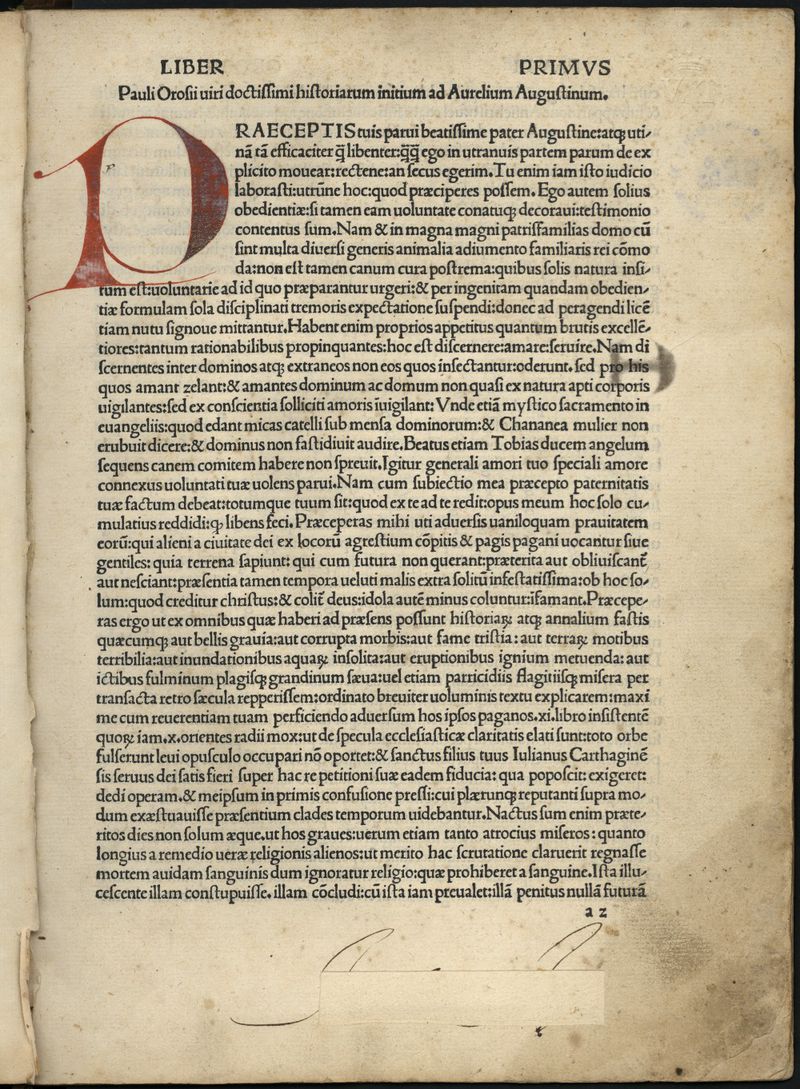 LIBER PRIMVS
Pauli Orosii uiri doctiſſimi hiſtoriarum initium ad Aurelium Auguſtinum.
PRAECEPTIS tuis parui beatiſſime pater Auguſtine:atq; uti-
nā tā efficaciter q̄ libenter:q̄q̄ ego in utranuis partem parum de ex
plicito mouear:rectene:an ſecus egerim.Tu enim iam iſto iudicio
laboraſti:utrūne hoc:quod præciperes poſſem. Ego autem ſolius
obedientiæ:ſi tamen eam uoluntate conatuq; decoraui:teſtimonio
contentus ſum.Nam & in magna magni patriſfamilias domo cū
ſint multa diuerſi generis animalia adiumento familiaris rei cōmo
da:non eſt tamen canum cura poſtrema:quibus ſolis natura inſi-
tum eſt:uoluntarie ad id quo præparantur urgeri:& per ingenitam quandam obedien-
tiæ formulam ſola diſciplinati tremoris expectatione ſuſpendi:donec ad peragendi licē
tiam nutu ſignoue mittantur.Habent enim proprios appetitus quantum brutis excellē-
tiores:tantum rationabilibus propinquantes:hoc eſt diſcernere:amare:ſeruire.Nam di
ſcernentes inter dominos atq; extraneos non eos quos inſectantur:oderunt. ſed pro his
quos amant zelant:& amantes dominum ac domum non quaſi ex natura apti corporis
uigilantes:ſed ex conſcientia ſolliciti amoris īuigilant: Vnde etiā myſtico ſacramento in
euangeliis:quod edant micas catelli ſub menſa dominorum:& Chananea mulier non
erubuit dicere:& dominus non faſtidiuit audire.Beatus etiam Tobias ducem angelum
ſequens canem comitem habere non ſpreuit.Igitur generali amori tuo ſpeciali amore
connexus uoluntati tuæ uolens parui.Nam cum ſubiectio mea præcepto paternitatis
tuæ factum debeat:totumque tuum ſit:quod ex te ad te redit:opus meum hoc ſolo cu-
mulatius reddidi:q; libens feci.Præceperas mihi uti aduerſis uaniloquam prauitatem
eorū:qui alieni a ciuitate dei ex locorū agreſtium cōpitis & pagis pagani uocantur ſiue
gentiles: quia terrena ſapiunt: qui cum futura non querant:præterita aut obliuiſcant̄
aut neſciant:præſentia tamen tempora ueluti malis extra ſolitū infeſtatiſſima:ob hoc ſo-
lum:quod creditur chriſtus:& colit̄ deus:idola autē minus coluntur:īfamant.Præcepe-
ras ergo ut ex omnibus quæ haberi ad præſens poſſunt hiſtoriaꝝ atq; annalium faſtis
quæcumq; aut bellis grauia:aut corrupta morbis:aut fame triſtia: aut terraꝝ motibus
terribilia:aut inundationibus aquaꝝ inſolita:aut eruptionibus ignium metuenda: aut
ictibus fulminum plagiſq; grandinum ſæua:uel etiam parricidiis flagitiiſq; miſera per
tranſacta retro ſæcula repperiſſem:ordinato breuiter uoluminis textu explicarem:maxi
me cum reuerentiam tuam perficiendo aduerſum hos ipſos paganos.xi.libro inſiſtentē
quoꝝ iam.x.orientes radii mox:ut de ſpecula eccleſiaſticæ claritatis elati ſunt:toto orbe
fulſerunt leui opuſculo occupari nō oportet:& ſanctus filius tuus Iulianus Carthaginē
ſis ſeruus dei ſatis fieri ſuper hac re petitioni ſuæ eadem fiducia: qua popoſcit: exigeret:
dedi operam.& meipſum in primis confuſione preſſi:cui plærunq; reputanti ſupra mo-
dum exæſtuauiſſe præſentium clades temporum uidebantur.Nactus ſum enim præte-
ritos dies non ſolum æque.ut hos graues:uerum etiam tanto atrocius miſeros: quanto
longius a remedio ueræ religionis alienos:ut merito hac ſcrutatione claruerit regnaſſe
mortem auidam ſanguinis dum ignoratur religio:quæ prohiberet a ſanguine.Iſta illu-
ceſcente illam conſtupuiſſe. illam cōcludi:cū iſta iam preualet:illā penitus nullā futurā
a 2